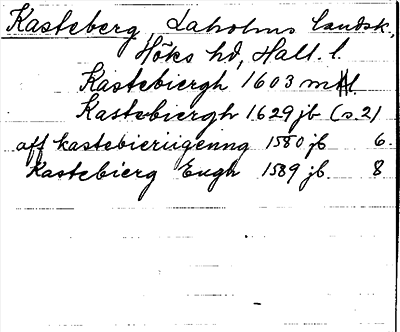 Kasteberg, Laholms landsk.,
Höks hd, Hall. l.
Kastebiergh 1603 mtl
Kastebiergh 1629 jb (s. 2)
aff kastebieriigenng 1580 jb 6.
Kastebierg Eugh 1589 jb. 8